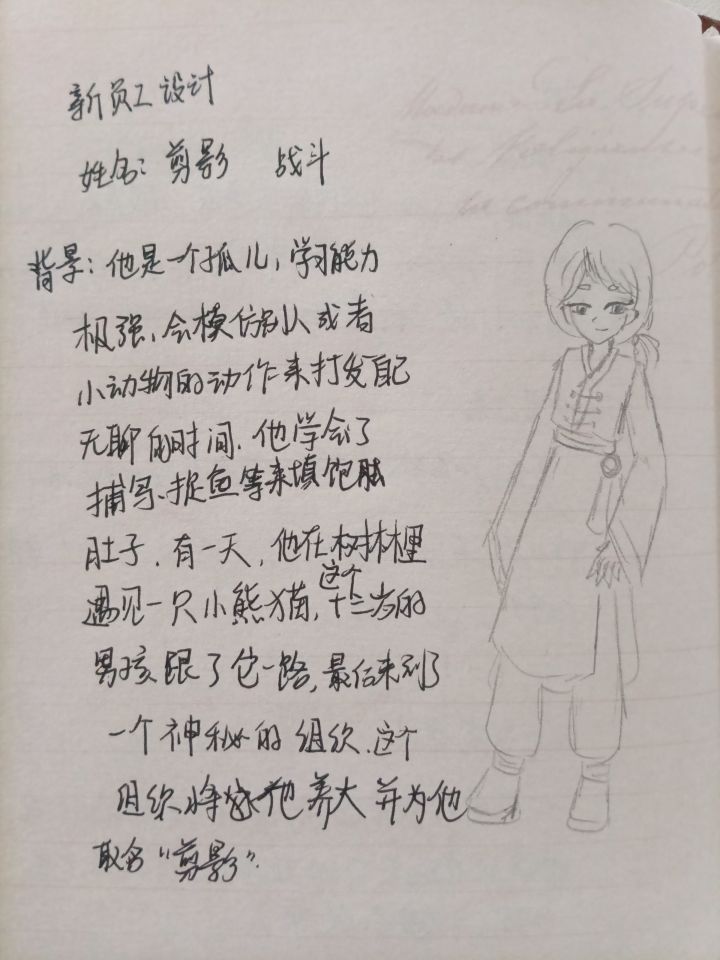 新员工设计
姓名：剪影 战斗
背景：他是一个孤儿，学习能力
极强，会模仿别人或者
小动物的动作来打发自己
无聊的时间，他学会了
捕鸟、捉鱼等来填饱肚
肚子，有一天，他在树林里
遇见一只小熊猫，这个十三岁的
男孩跟了它一路，最后来到了
一个神秘的组织，这个
组织将他养大并为他
取名“剪影”。